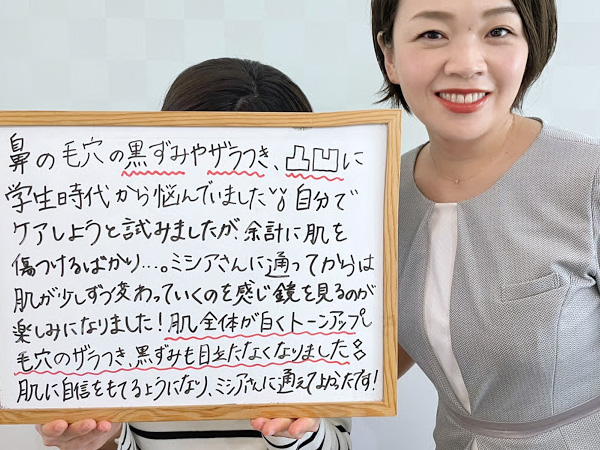 鼻の毛穴の黒ずみやザラつき、凸凹に
学生時代から悩んでいました💧自分で
ケアしようと試みましたが、余計に肌を
傷つけるばかり…。ミシアさんに通ってからは
肌が少しずつ変わっていくのを感じ鏡を見るのが
楽しみになりました！肌全体が白くトーンアップし
毛穴のザラつき、黒ずみも目立たなくなりました
肌に自信をもてるようになり、ミシアさんに通えてよかったです！